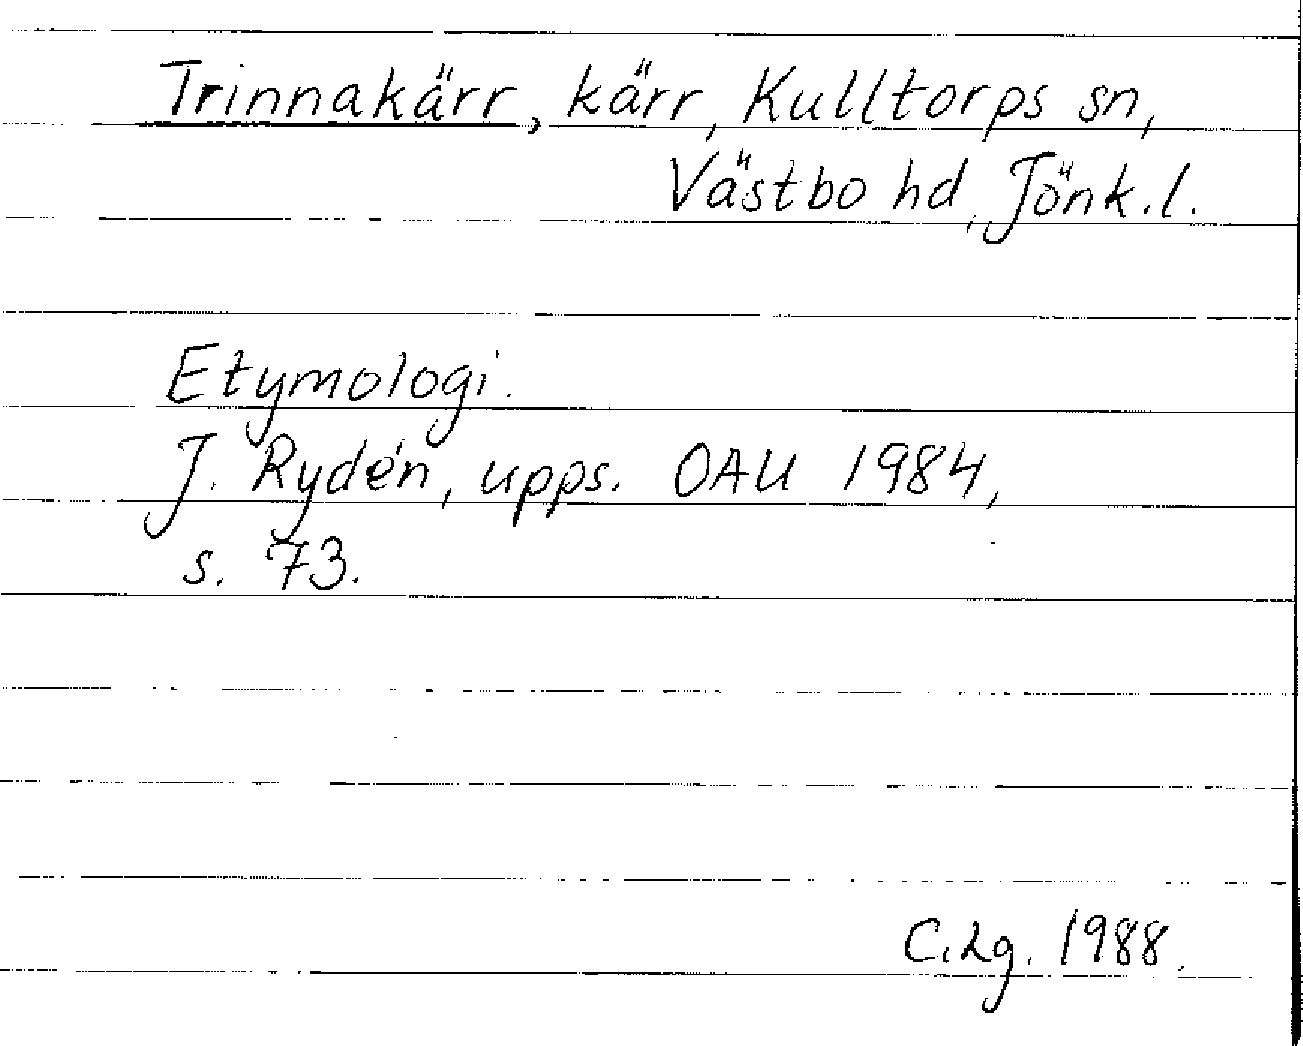 Trinnakärr, kärr, Kulltorps sn,
Västbo hd, Jönk.l.
Etymologi.
J. Rydén, upps. OAU 1984,
s. 73.
C.Lg. 1988.